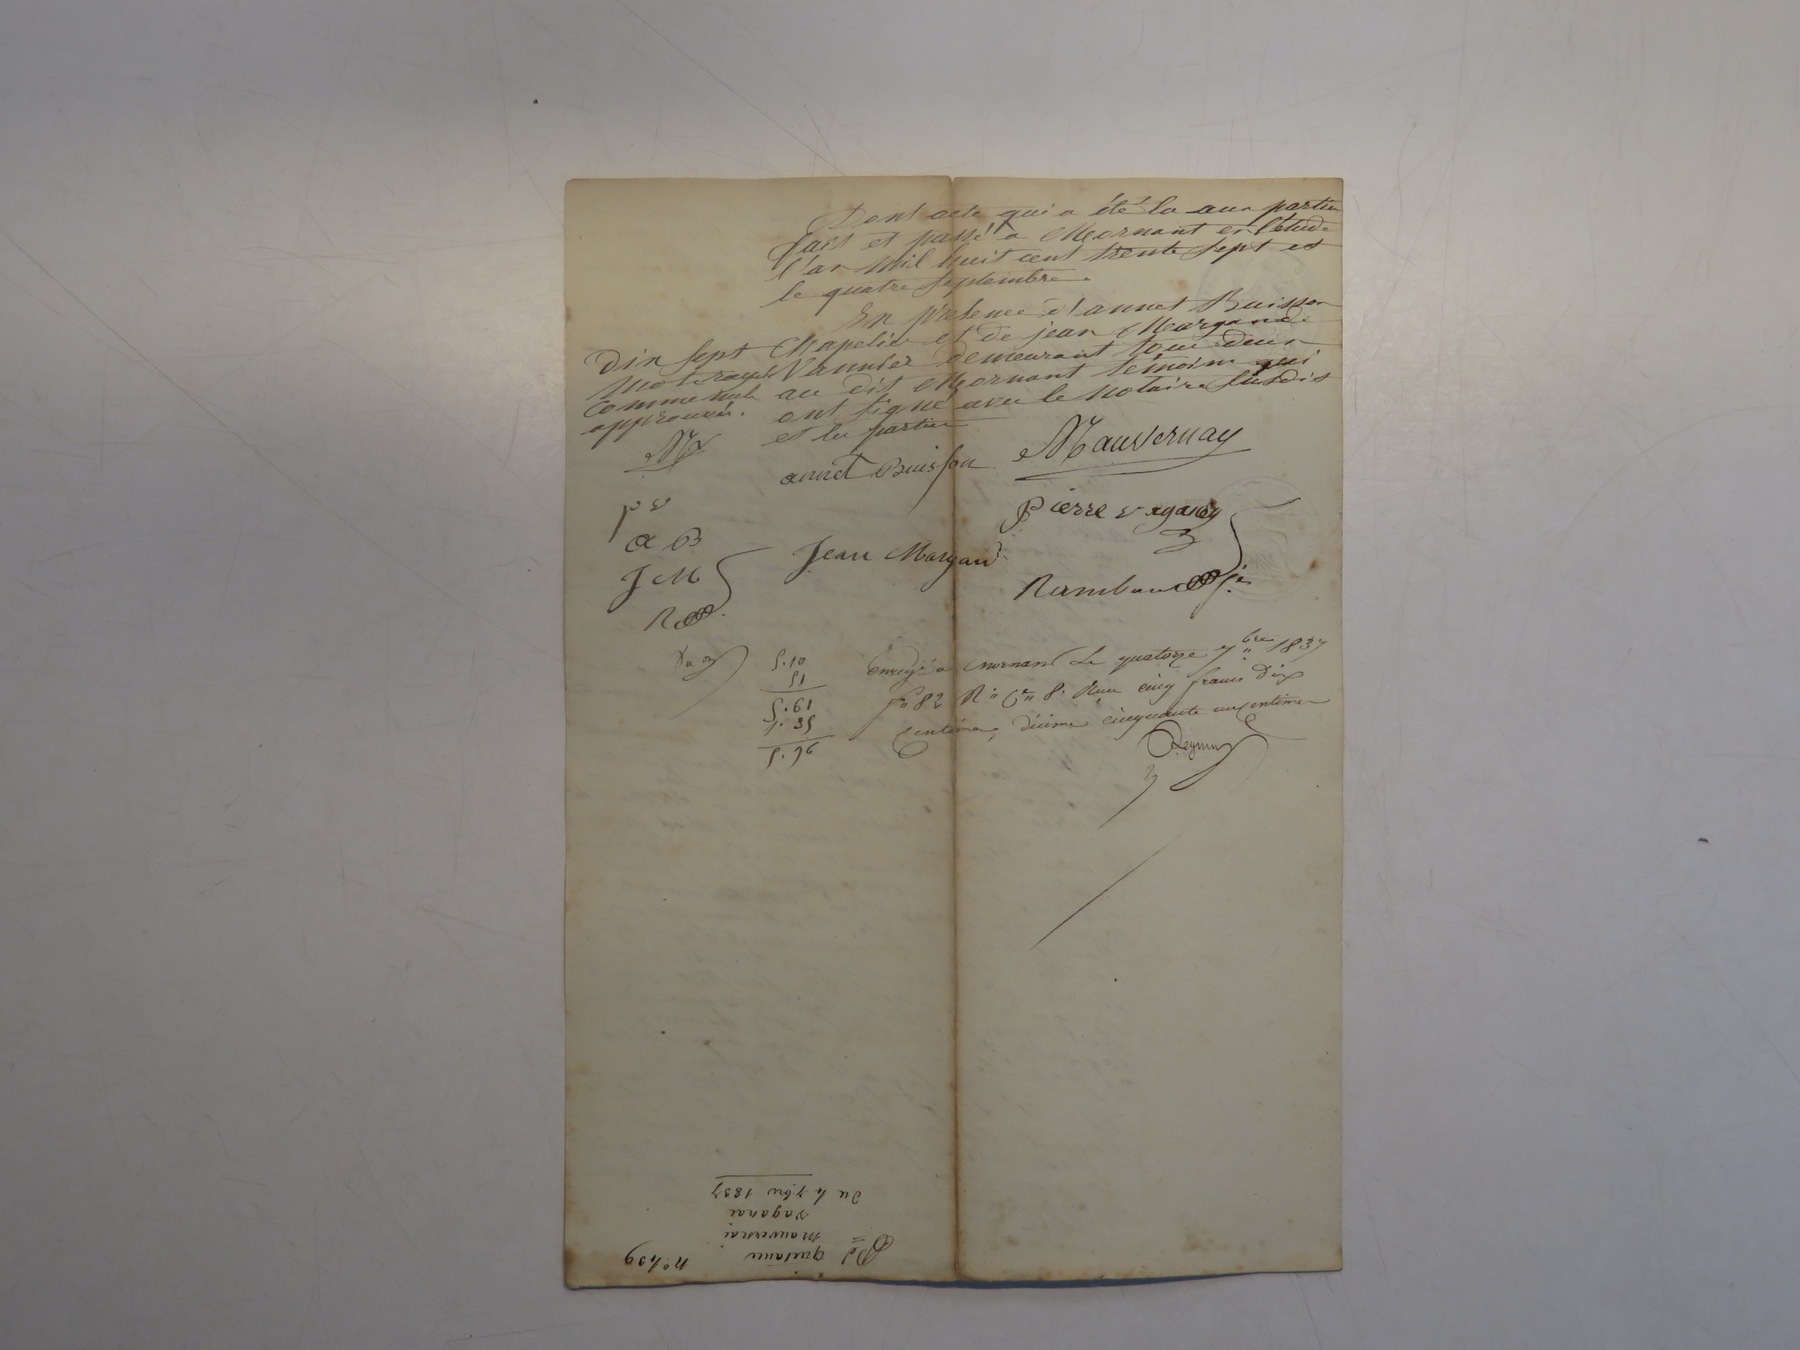 Dont acte qui a été lu aux parties
fait et passé à Mornant en l'étude
l'an mil huit cent trente sept et
le quatre septembre.
En présence d'annet Buisson
Chapelier et de jean Margand
Vannier demeurant tous deux
au dit Mornant témoins qui
ont signé avec le notaire susdit
et les parties
Dix sept
mots rayés
comme nuls
approuvés.
annet Buisson
Mauvernay
pierre vaganay
Jean Margand
Rambaud
p v
a B
J M
R
5.10
51
5.61
5.96
Enregé a Mornant Le quatorze 7bre 1837
fo 82 Ro Ce 8. Reçu cinq francs dix
centimes, décime cinquante un centimes
Pd
quitance
Mauvernai
Vaganai
Du 4 7bre 1837
no 439